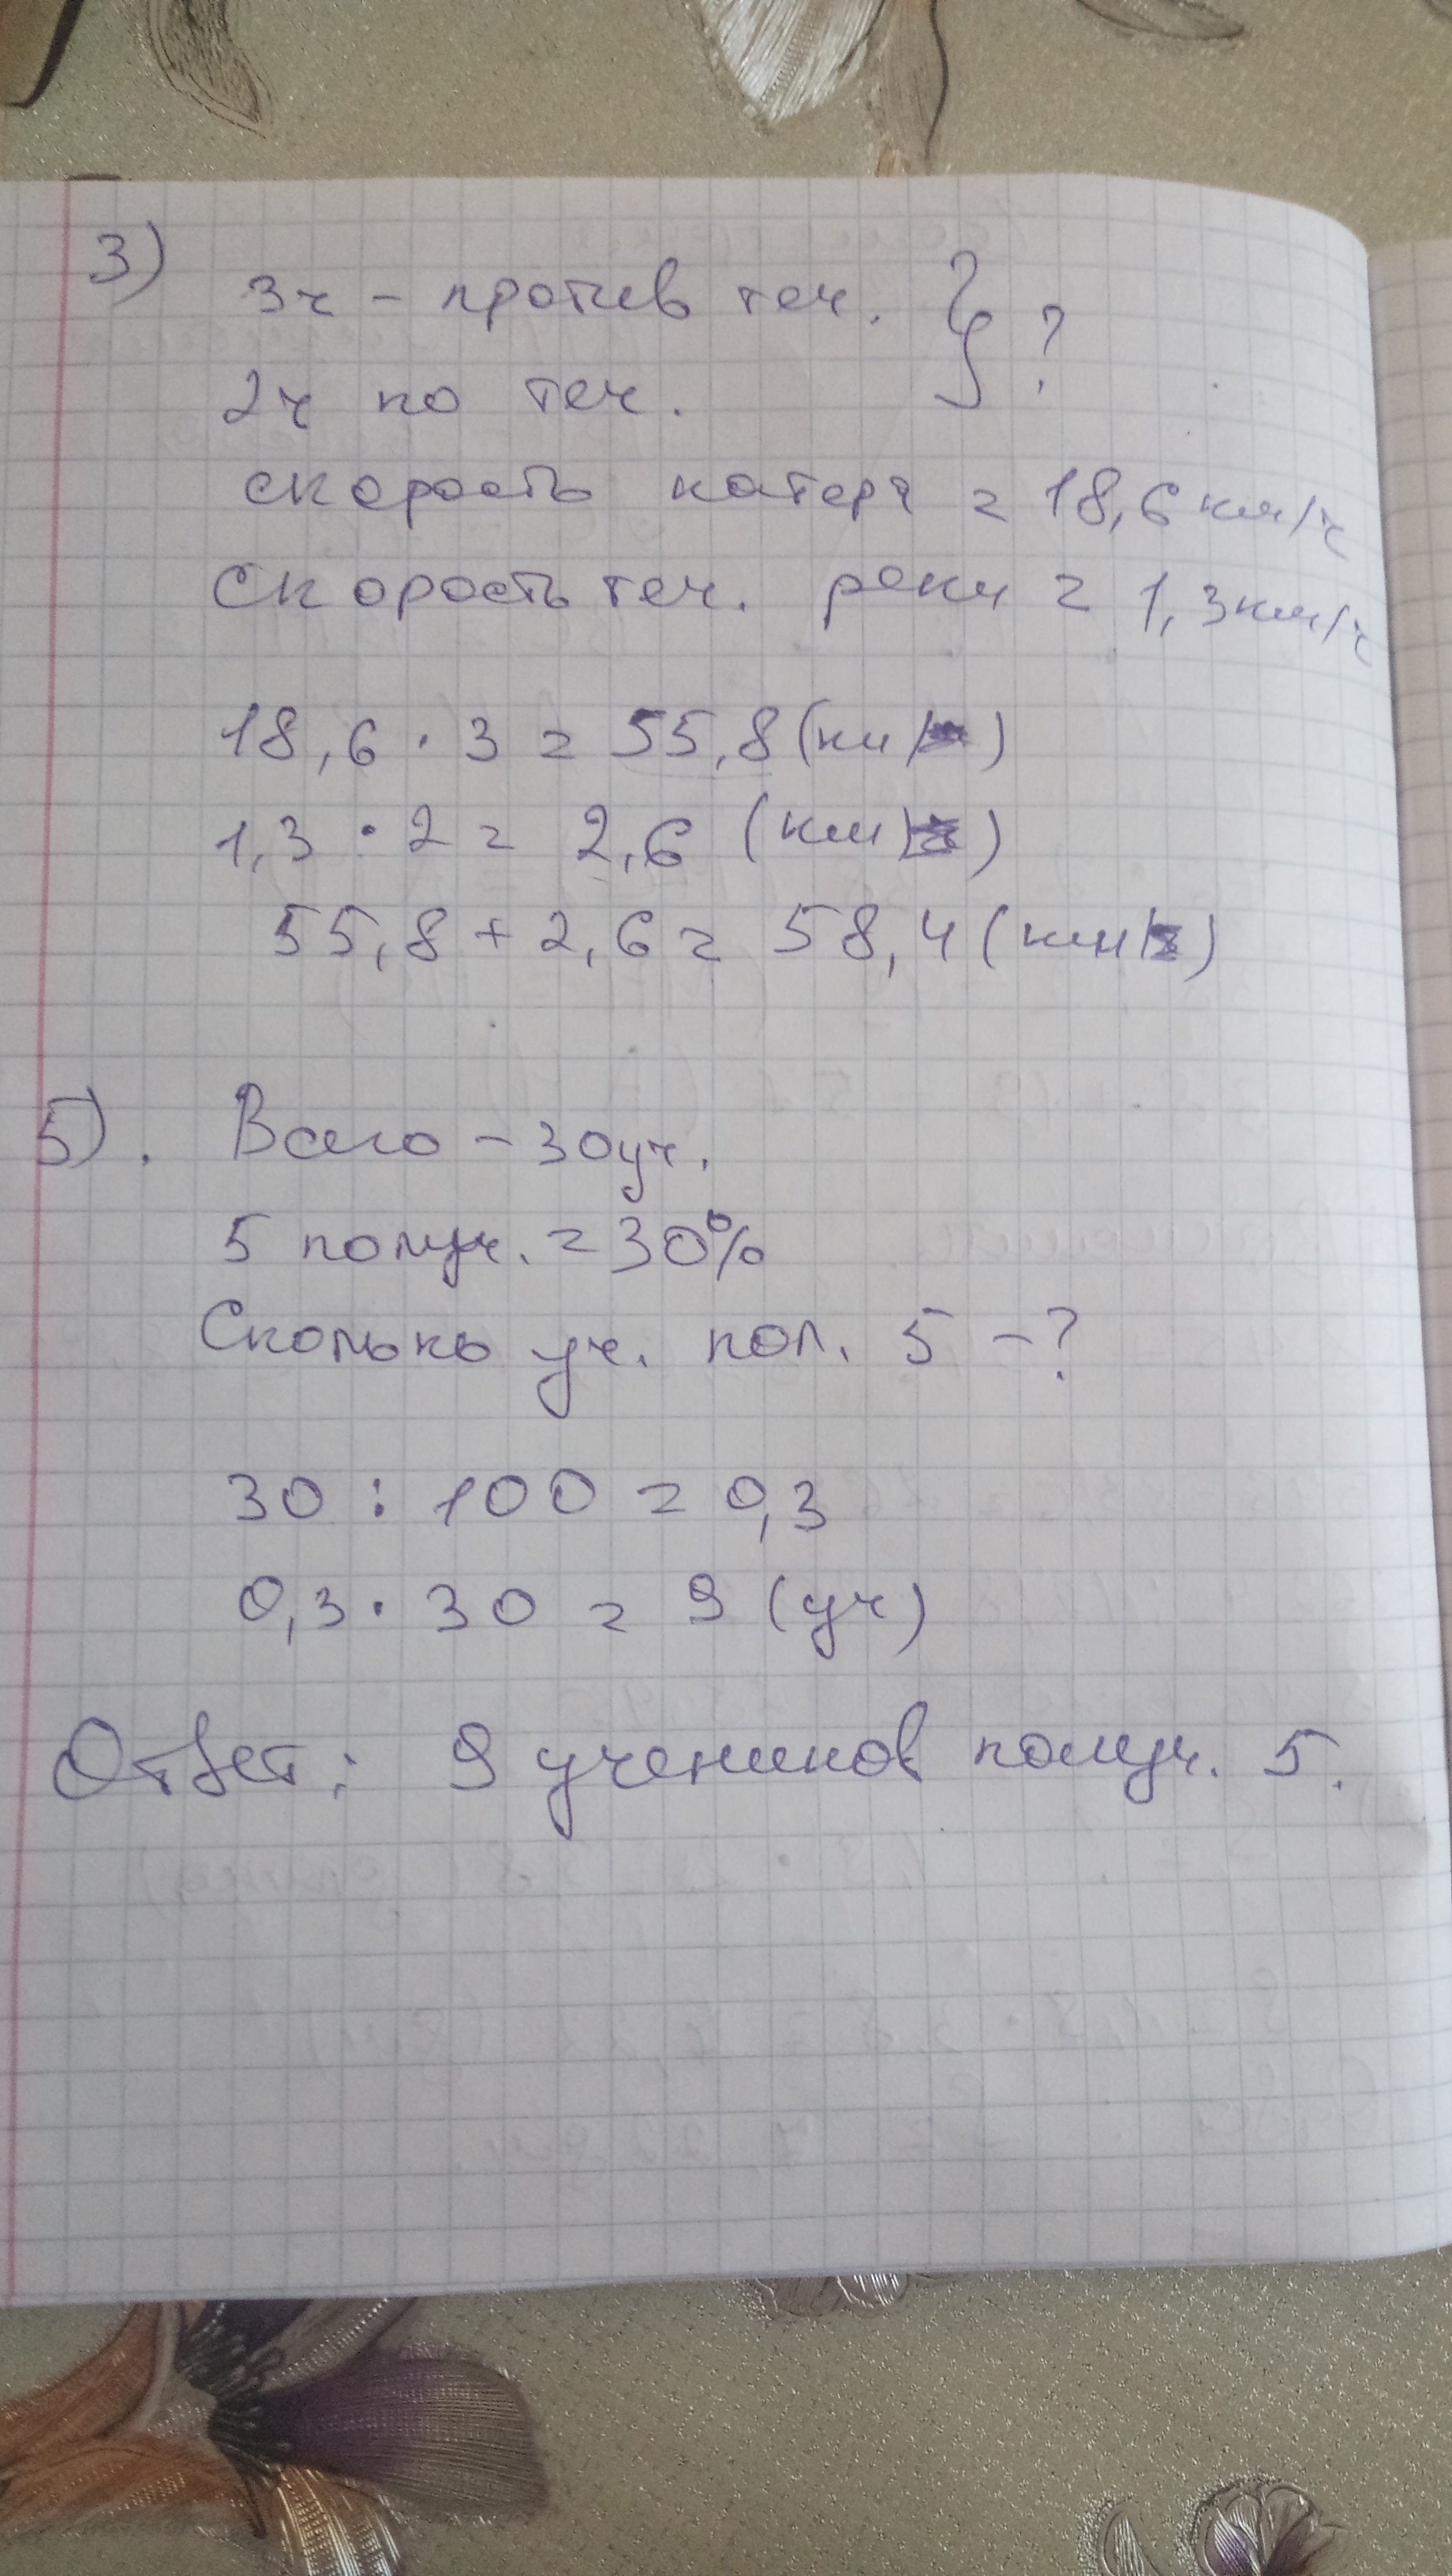 3)
3ч - против теч. } ?
2ч по теч.
скорость катера = 18,6 км/ч
скорость теч. реки = 1,3 км/ч
18,6 · 3 = 55,8 (км/)
1,3 · 2 = 2,6 (км/)
55,8 + 2,6 = 58,4 (км/)
5). Всего - 30 уч.
5 получ. = 30%
Сколько уч. пол. 5 - ?
30 : 100 = 0,3
0,3 · 30 = 9 (уч)
Ответ: 9 учеников получ. 5.